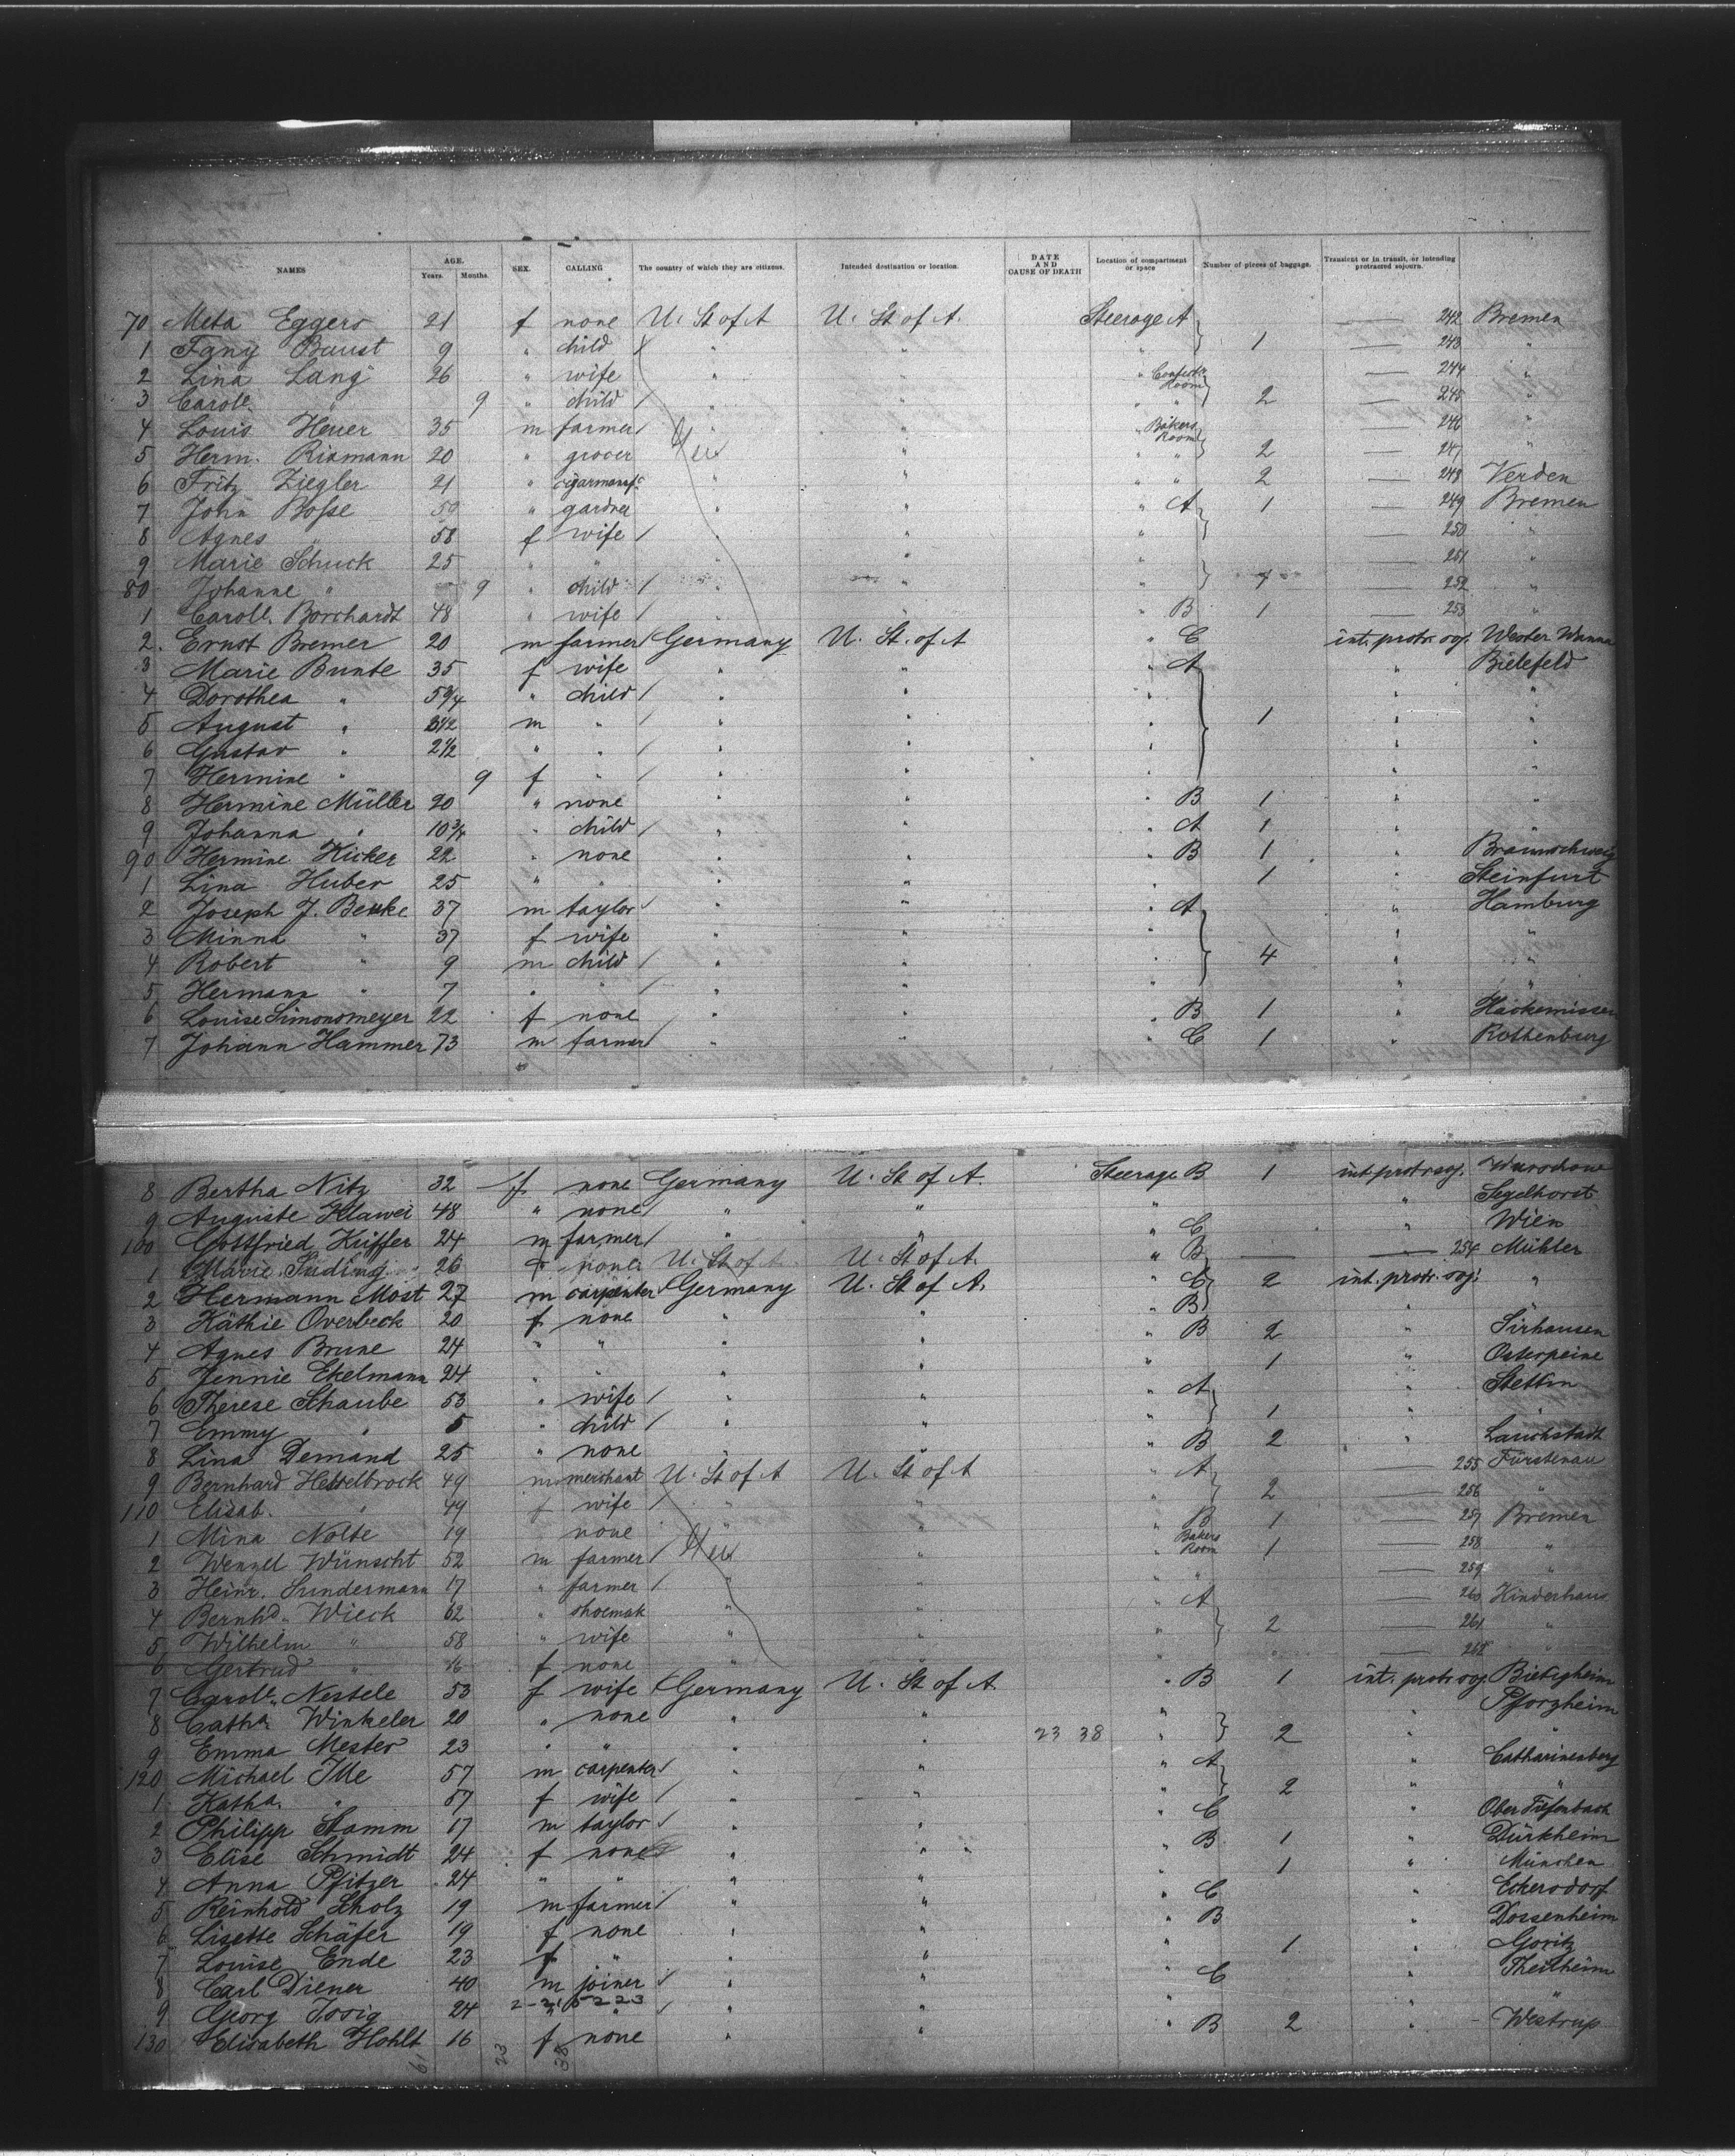 NAMES AGE. Years. Months. SEX. CALLING The country of which they are citizens. Intended destination or location. DATE AND CAUSE OF DEATH Location of compartment or space Number of pieces of baggage. Transient or in transit, or intending protracted sojourn.
70 Meta Eggers 21 f none U. St of A U. St of A. Steerage A — 242 Bremen
1 Fany Baust 9 " child / " " " 1 — 243 "
2 Lina Lang 26 " wife " " " Room — 244 "
3 Caroll. " 9 " child / " " " " 2 — 245 "
4 Louis Heuer 35 m farmer / " " " Bakers Room — 246 "
5 Herm. Rixmann 20 " grocer " " " 2 — 247 "
6 Fritz Ziegler 21 " cigarmanf. " " " " 2 — 248 Verden
7 John Bosse 59 " gardner " " " A 1 — 249 Bremen
8 Agnes " 58 f wife / " " " — 250 "
9 Marie Schuck 25 " " " " " — 251 "
80 Johanne " 9 " child / " " " 1 — 252 "
1 Caroll. Borchardt 48 " wife / " " " B 1 — 253 "
2. Ernst Bremer 20 m farmer / Germany U. St. of A " C int. protr. soj. Wester Wanna
3 Marie Bunte 35 f wife " " " A " Bielefeld
4 Dorothea " 5 3/4 " child / " " " " "
5 August " 3 1/2 m " / " " " 1 " "
6 Gustav " 2 1/2 " " / " " " " "
7 Hermine " 9 f " / " " " " "
8 Hermine Müller 20 " none " " " B 1 " "
9 Johanna " 10 3/4 " child / " " " A 1 " "
90 Hermine Kicker 22 " none " " " B 1 " Braunschweig
1 Lina Huber 25 " " " " " 1 " Steinfurt
2 Joseph J. Benke 37 m taylor / " " " A " Hamburg
3 Minna " 37 f wife " " " " "
4 Robert " 9 m child / " " " 4 " "
5 Hermann " 7 " " / " " " " "
6 Louise Simonsmeyer 22 f none " " " B 1 " Hackemissen
7 Johann Hammer 73 m farmer / " " " C 1 " Rothenburg
8 Bertha Nitz 32 f none Germany U. St of A. Steerage B 1 int. protr. soj.
9 Auguste Klawei 48 " none / " " " " Segelhorst
100 Gottfried Küffer 24 m farmer / " " " C " Wien
1 Marie Suding 26 f none U. St of A. U. St of A. " B — — 254 Mühler
2 Hermann Most 27 m carpenter / Germany U. St of A. " C 2 int. protr. soj. "
3 Käthie Overbeck 20 f none " " " B "
4 Agnes Brune 24 " " " " " B 2 " Sirhausen
5 Jennie Ekelmann 24 " " " " " 1 " Osterpeine
6 Therese Schaube 53 " wife / " " " A " Stettin
7 Emmy " 5 " child / " " " 1 " "
8 Lina Demand 25 " none " " " B 2 " Lauchstadt
9 Bernhard Hesselbrock 49 m merchant U. St of A U. St of A " A — 255 Fürstenau
110 Elisab. " 49 f wife / " " " 2 — 256 "
1 Mina Nolte 19 none " " " B 1 — 257 Bremen
2 Wenzel Wünscht 52 m farmer / " " Bakers Room 1 — 258 "
3 Heinr. Sundermann 17 " farmer / " " " " 259 "
4 Bernhd. Wieck 62 " shoemak " " " A — 260 Hinderhaus
5 Wilhelm " 58 " wife " " " 2 — 261 "
6 Gertrud " 16 f none " " " — 262 "
7 Caroll. Nestele 53 f wife / Germany U. St of A " B 1 int. protr. soj. Bietigheim
8 Catha. Winkeler 20 " none " " " " Pforzheim
9 Emma Mester 23 " " " " 23 38 " 2 " "
120 Michael Ille 57 m carpenter / " " " A " Catharinenberg
1 Katha. " 57 f wife / " " " 2 " "
2 Philipp Stamm 17 m taylor / " " " C " Ober Tiefenbach
3 Elise Schmidt 24 f none " " " B 1 " Dürkheim
4 Anna Pfitzer 24 " " " " " 1 " München
5 Reinhold Scholz 19 m farmer / " " " C " Eckersdorf
6 Lisette Schäfer 19 f none " " " B " Dossenheim
7 Louise Ende 23 f " " " " 1 " Goritz
8 Carl Diener 40 m joiner / " " " C " Theilheim
9 Georg Issig 24 " / " " " " "
130 Elisabeth Hohlt 16 f none " " " B 2 " Westrup
61 23 38